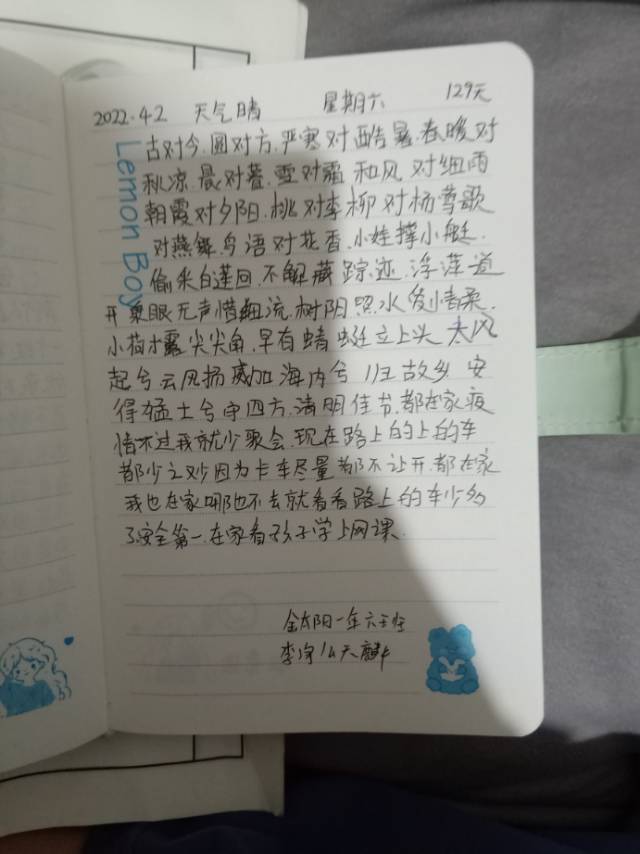 2022.4.2 天气晴 星期六 129天
古对今.圆对方,严寒对酷暑.春暖对
秋凉.晨对暮.雪对霜 和风 对细雨
朝霞对夕阳.桃对李柳对杨莺歌
对燕舞.鸟语对花香.小娃撑小艇.
偷采白莲回.不解藏踪迹.浮萍道
开泉眼无声惜细流.树阴照水爱情柔.
小荷才露尖尖角.早有蜻蜓立上头 大风
起兮.云风扬威加海内兮 归故乡 安
得猛士兮守四方.清明佳节.都在家疫
情不过我就少聚会.现在路上的上的车
都少之又少因为卡车尽量都不让开.都在家
我也在家哪也不去就看看路上的车少多
了安全第一.在家看孩子学上网课.
金太阳一年六班
天麟
Lemon Boy